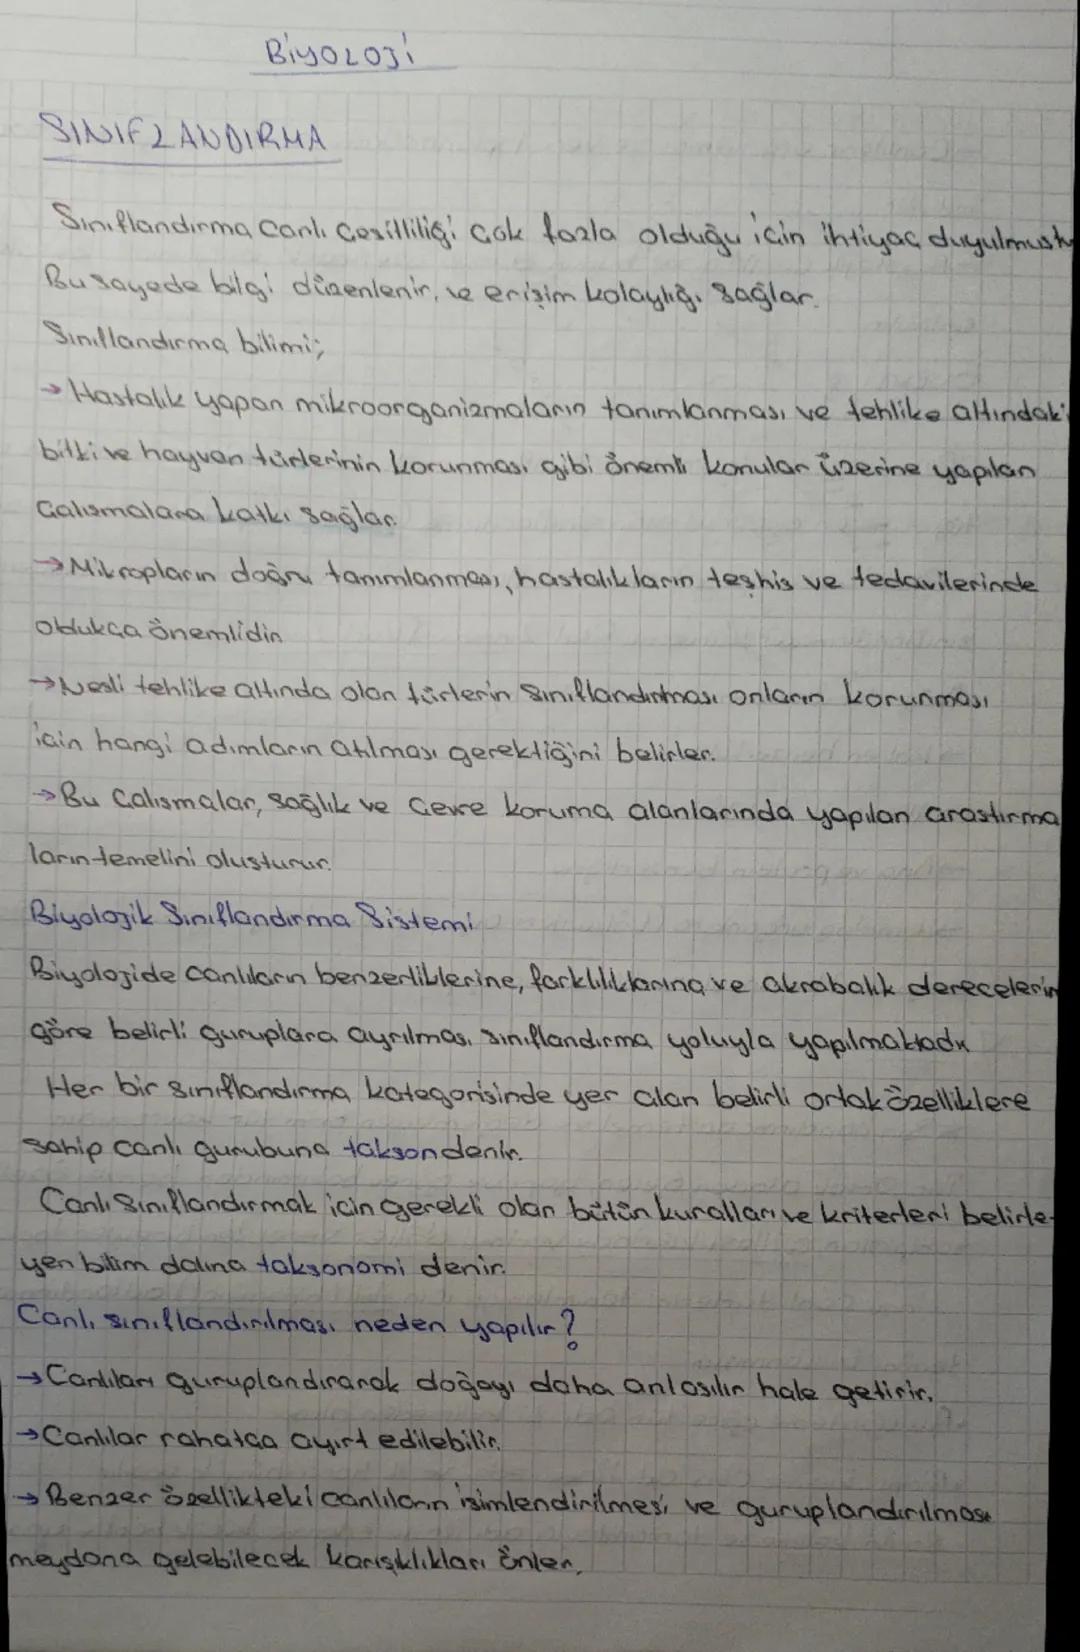 BİYOLOJİ
SINIFLANDIRMA
Sınıflandırma canlı çeşitliliği çok fazla olduğu için ihtiyaç duyulmuştu
Bu sayede bilgi düzenlenir, ve erişim kolaylığı sağlar.
Sınıflandırma bilimi;
→ Hastalık yapan mikroorganizmaların tanımlanması ve tehlike altındaki
bitki ve hayvan türlerinin korunması gibi önemli konular üzerine yapılan
çalışmalara katkı sağlar.
→ Mikropların doğru tanımlanması, hastalıkların teşhis ve tedavilerinde
oldukça önemlidir.
→ Nesli tehlike altında olan türlerin sınıflandırılması onların korunması
için hangi adımların atılması gerektiğini belirler.
→ Bu çalışmalar, sağlık ve çevre koruma alanlarında yapılan araştırma
ların temelini oluşturur.
Biyolojik Sınıflandırma Sistemi
Biyolojide canlıların benzerliklerine, farklılıklarına ve akrabalık derecelerin
göre belirli guruplara ayrılması sınıflandırma yoluyla yapılmaktadır
Her bir sınıflandırma kategorisinde yer alan belirli ortak özelliklere
sahip canlı gurubuna takson denir.
Canlı Sınıflandırmak için gerekli olan bütün kuralları ve kriterleri belirle-
yen bilim dalına taksonomi denir.
Canlı sınıflandırılması neden yapılır?
→ Canlıları guruplandırarak doğayı daha anlaşılır hale getirir.
→ Canlılar rahatça ayırt edilebilir.
→ Benzer özellikteki canlıların isimlendirilmesi ve guruplandırılması
meydana gelebilecek karışıklıkları önler.